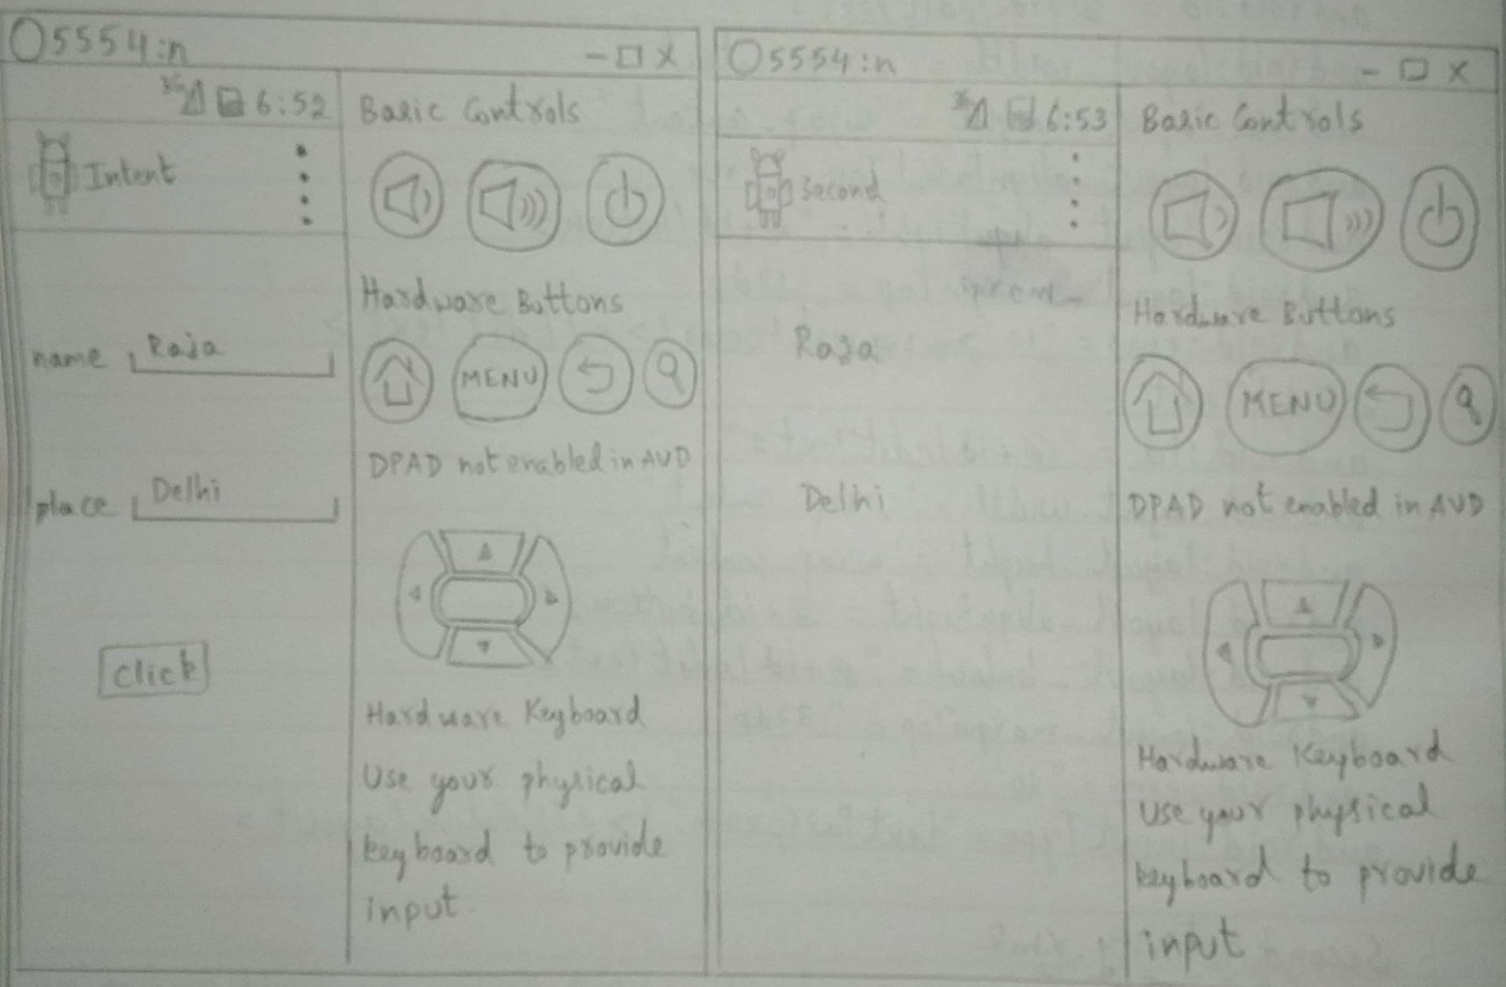 5554:n
6:52
Intent
name Raja
place Delhi
click
Basic Controls
Hardware Buttons
MENU
DPAD not enabled in AVD
Hardware Keyboard
Use your physical
keyboard to provide
input
5554:n
6:53
Second
Raja
Delhi
Basic Controls
Hardware Buttons
MENU
DPAD not enabled in AVD
Hardware Keyboard
Use your physical
keyboard to provide
input